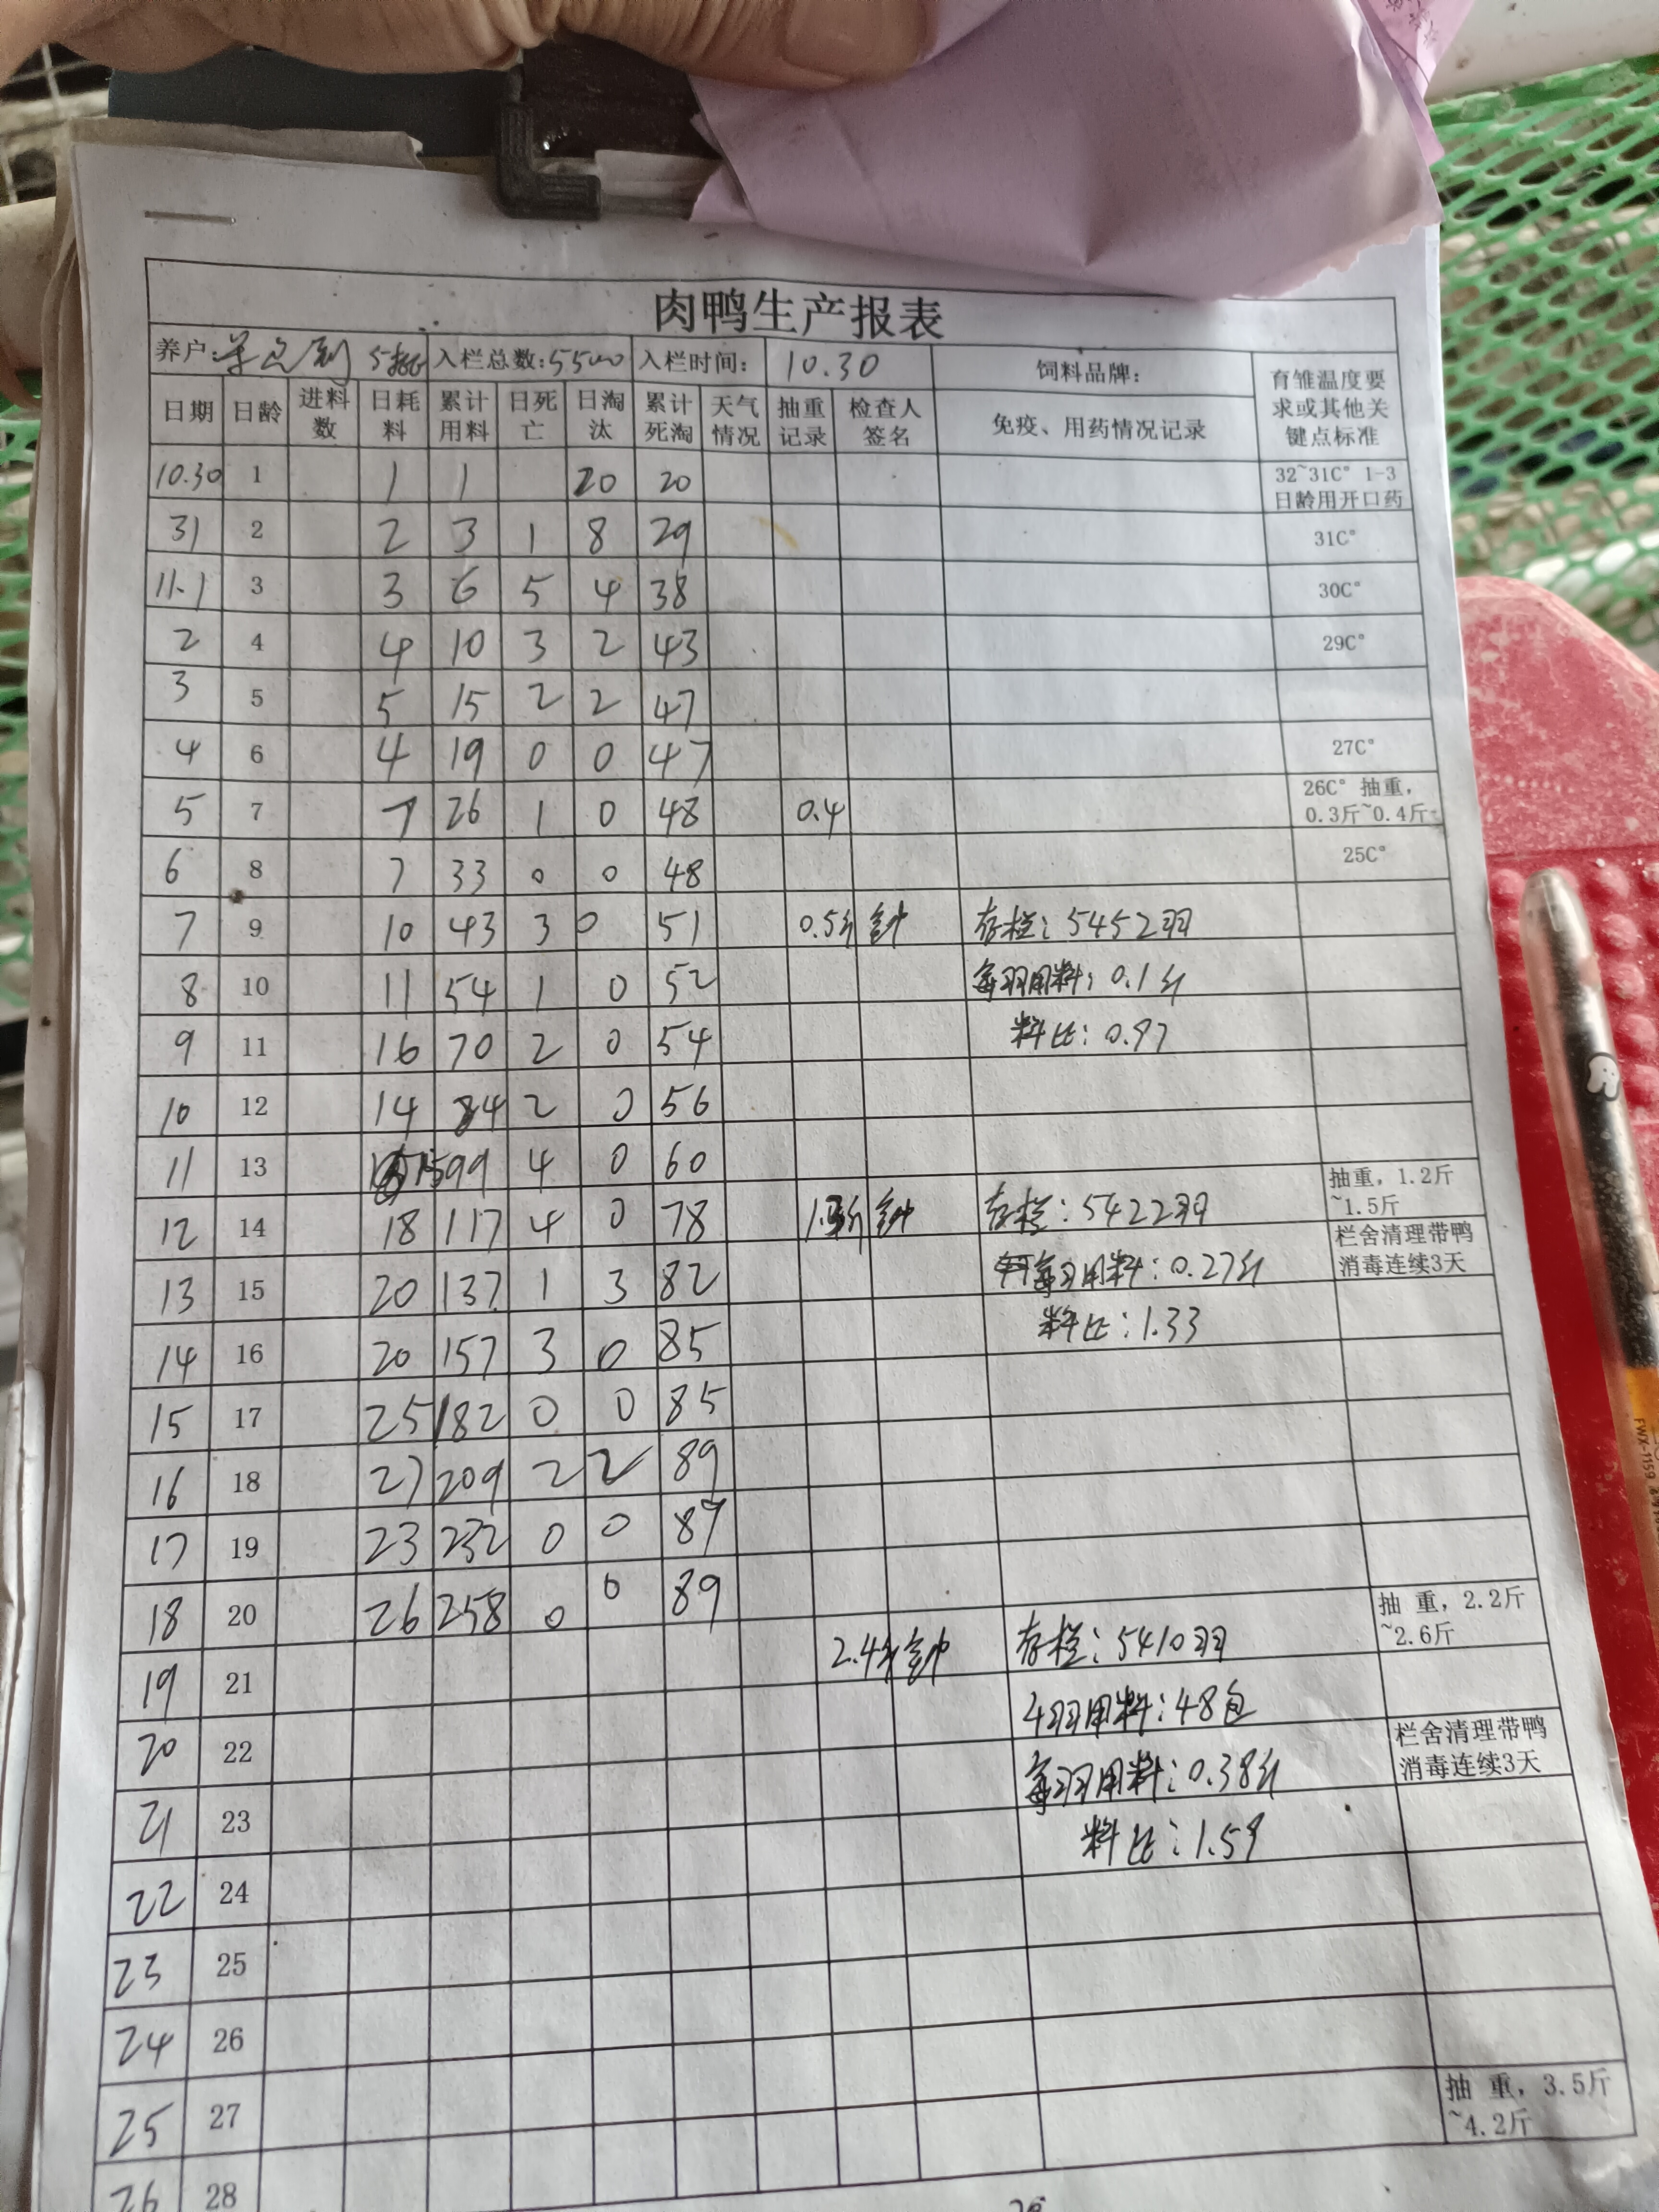 肉鸭生产报表
养户: 5批 入栏总数:5500 入栏时间: 10.30 饲料品牌:
日期 日龄 进料数 日耗料 累计用料 日死亡 日淘汰 累计死淘 天气情况 抽重记录 检查人签名 免疫、用药情况记录 育雏温度要求或其他关键点标准
10.30 1 1 1 20 20 32~31C° 1-3日龄用开口药
31 2 2 3 1 8 29 31C°
11.1 3 3 6 5 4 38 30C°
2 4 4 10 3 2 43 29C°
3 5 5 15 2 2 47
4 6 4 19 0 0 47 27C°
5 7 7 26 1 0 48 0.4 26C° 抽重,0.3斤~0.4斤
6 8 7 33 0 0 48 25C°
7 9 10 43 3 0 51 0.5斤 存栏:5452羽
8 10 11 54 1 0 52 每羽用料:0.1斤
9 11 16 70 2 0 54 料比:0.97
10 12 14 84 2 0 56
11 13 15 99 4 0 60 抽重,1.2斤~1.5斤
12 14 18 117 4 0 78 存栏:5422羽
13 15 20 137 1 3 82 每羽用料:0.27斤 栏舍清理带鸭消毒连续3天
14 16 20 157 3 0 85 料比:1.33
15 17 25 182 0 0 85
16 18 27 209 2 2 89
17 19 23 232 0 0 89
18 20 26 258 0 0 89 抽 重,2.2斤~2.6斤
19 21 2.4斤 存栏:5410羽
20 22 羽用料:48包 栏舍清理带鸭消毒连续3天
21 23 每羽用料:0.38斤
料比:1.59
22 24
23 25
24 26
25 27 抽 重,3.5斤~4.2斤
26 28
FWX-1159